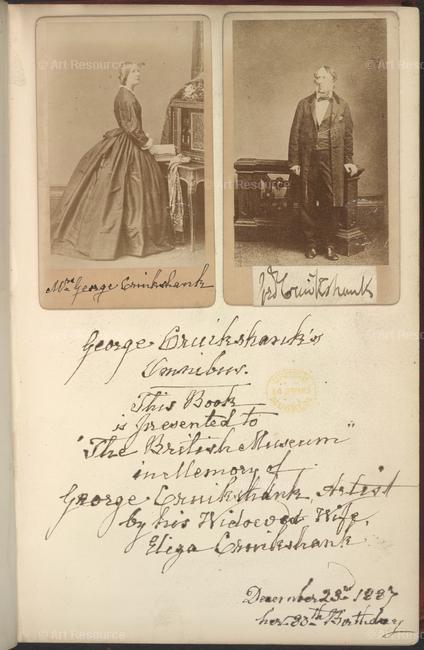 © Art Resource
© Art Resource
Mrs George Cruikshank
Geo Cruikshank
George Cruikshank's
Omnibus.
This Book
is presented to
"The British Museum"
in Memory of
George Cruikshank, Artist
by his Widowed Wife,
Eliza Cruikshank
December 23rd 1887
her 80th Birthday